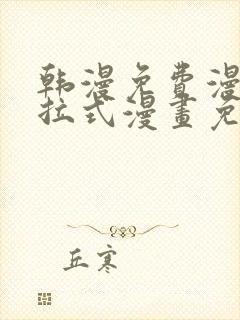 韩漫免费漫
拉式漫畫免
丘寒